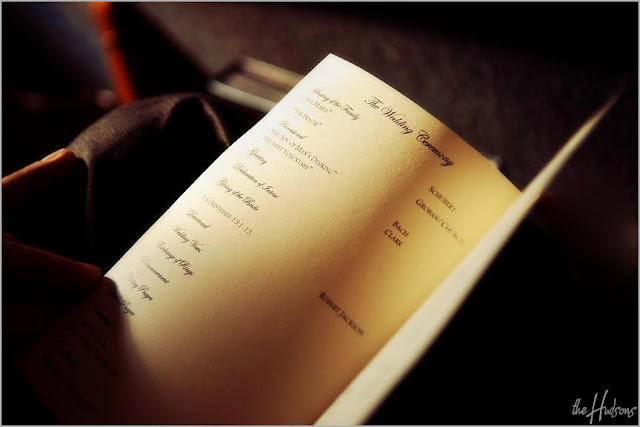 The Wedding Ceremony
Seating of the Family
"Ave Maria" Schubert
"The Prayer" Groban/ Church
Processional
"Jesu, Joy of Man's Desiring" Bach
"Trumpet Voluntary" Clark
Greeting
Declaration of Intent
Giving of the Bride
1 Corinthians 13:1-13 Robert Jackson
Devotional
Wedding Vows
Exchange of Rings
Pronouncement
Prayer
Prayer
the Hudsons